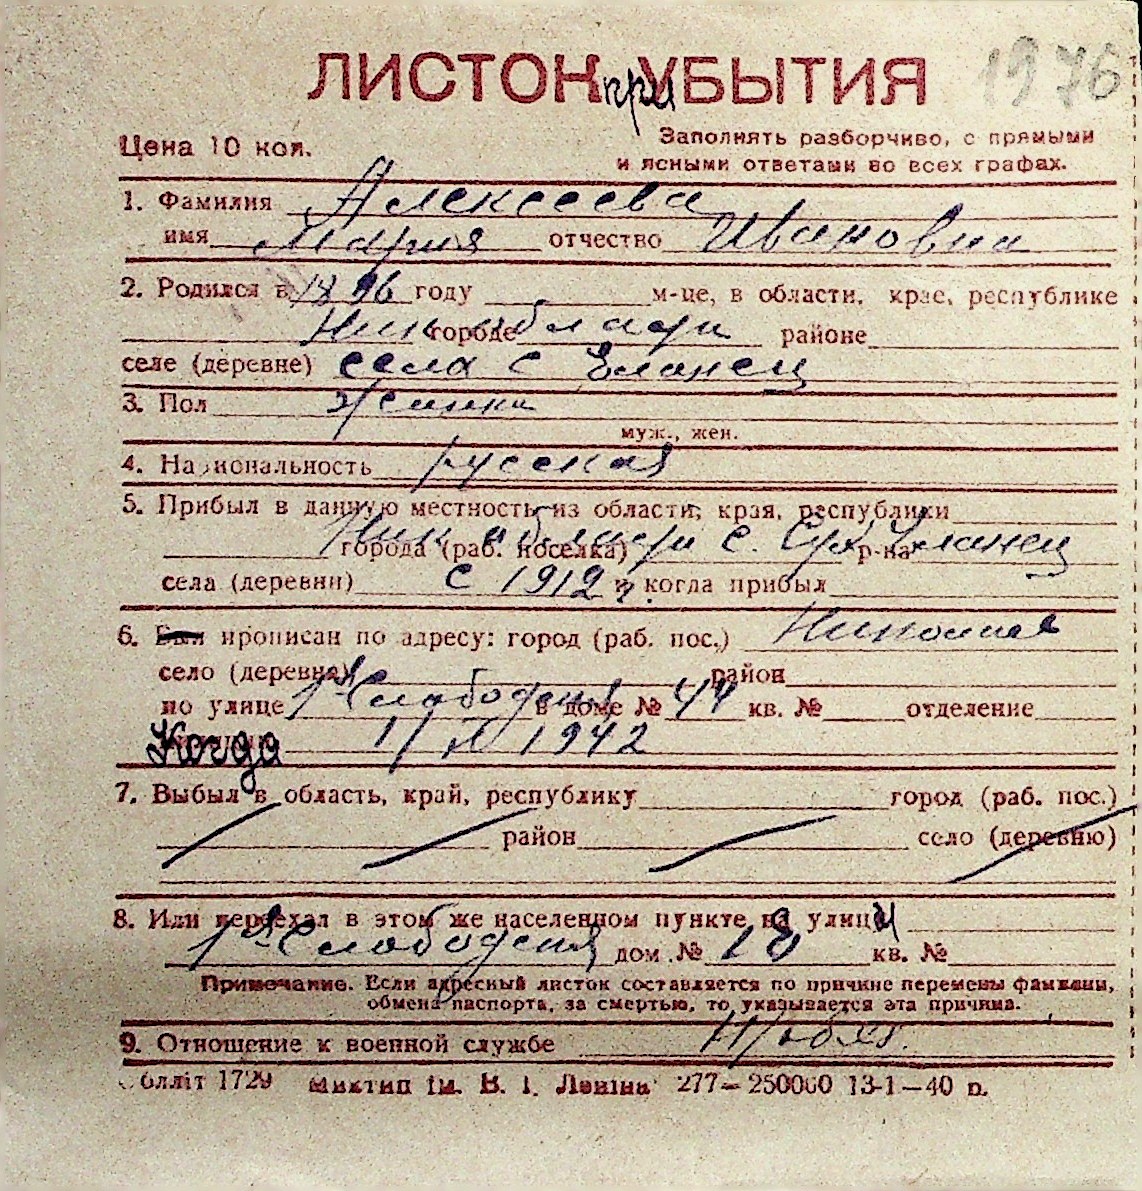 1976
ЛИСТОК при УБЫТИЯ
Цена 10 коп.
Заполнять разборчиво, с прямыми
и ясными ответами во всех графах.
1. Фамилия Алексеева
имя Мария отчество Ивановна
2. Родился в 1896 году м-це, в области, крае, республике
Ник области городе районе
селе (деревне) села с Еланец
3. Пол
муж., жен.
4. Национальность русская
5. Прибыл в данную местность из области, края, республики
Ник области города (раб. поселка) с. Сух Еланец р-на
села (деревни) с 1912 г. и когда прибыл
6. Был прописан по адресу: город (раб. пос.) Николаев
село (деревня) район
по улице 1я Слободская в доме № 44 кв. № отделение
Когда 1/XI 1942
7. Выбыл в область, край, республику город (раб. пос.)
район село (деревню)
8. Или переехал в этом же населенном пункте на улицу
1я Слободская дом № 18 кв. №
Примечание. Если адресный листок составляется по причине перемены фамилии,
обмена паспорта, за смертью, то указывается эта причина.
9. Отношение к военной службе Н/обяз.
Облліт 1729 Миктип ім. В. І. Леніна 277—250000 13-1—40 р.